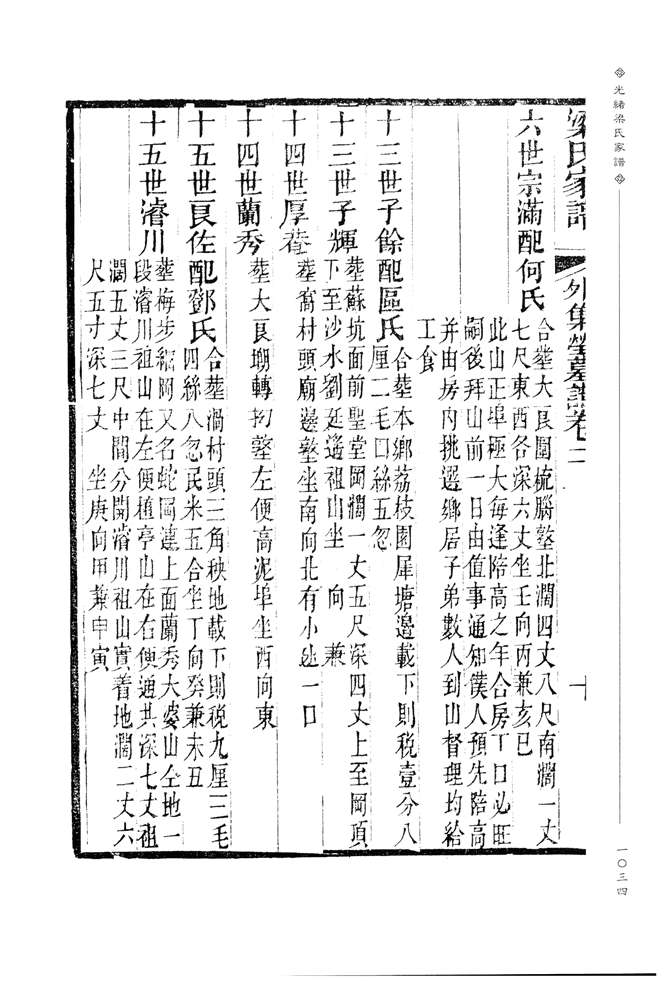 光緒梁氏家譜
一〇三四
梁氏家譜 外集塋墓譜卷二 十
六世宗滿配何氏
合塟大良圍梳腦墪北濶四丈八尺南濶一丈
七尺東西各深六丈坐壬向丙兼亥巳
此山正埠極大每逢陪高之年合房丁口必旺
嗣後拜山前一日由值事通知僕人預先陪高
并由房内挑選鄉居子弟數人到山督理均給
工食
十三世子餘配區氏
合塟本鄉荔枝園犀塘邊載下則税壹分八
厘二毛口絲五忽
十三世子輝
塟蘇坑面前聖堂岡濶一丈五尺深四丈上至岡頂
下至沙水劉廷遙祖山坐 向 兼
十四世厚菴
塟窩村頭廟邊墪坐南向北有小地一口
十四世蘭秀
塟大良塱轉拗墪左便高泥埠坐西向東
十五世良佐配鄧氏
合塟渦村頭三角秧地載下則税九厘三毛
四絲八忽民米五合坐丁向癸兼未丑
十五世濬川
塟梅步 岡又名蛇岡連上面蘭秀大婆山仝地一
段濬川祖山在左便植亭山在右便通共深七丈祖
濶五丈三尺中間分開濬川祖山實着地濶二丈六
尺五寸深七丈 坐庚向甲兼申寅